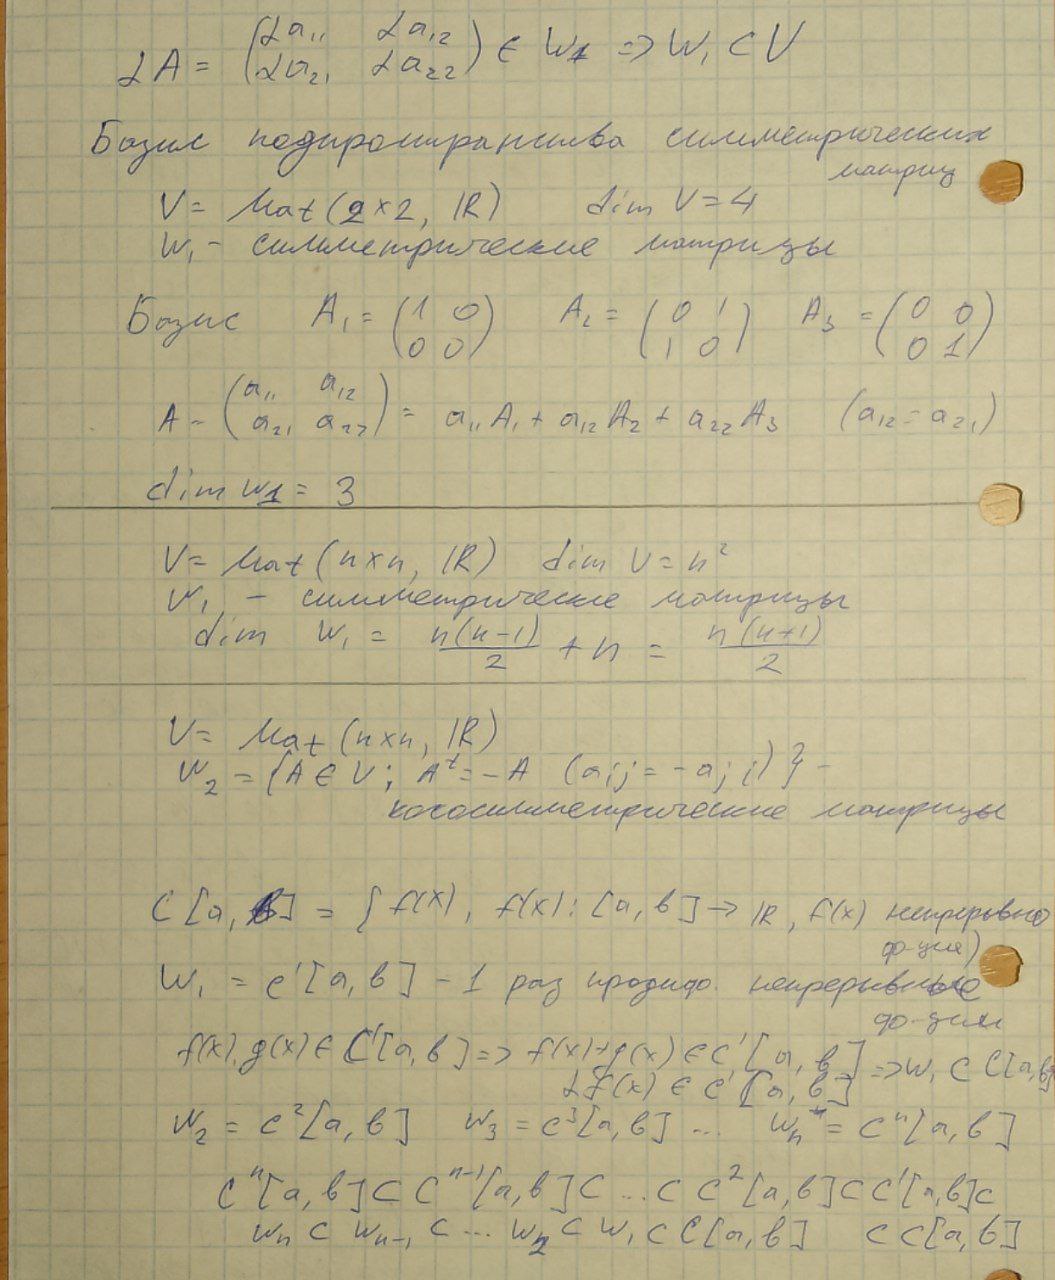 αA = (αa₁₁ αa₁₂
αa₂₁ αa₂₂) ∈ W₁ => W₁ ⊂ V
Базис подпространства симметрических
матриц
V = Mat(2×2, IR) dim V = 4
W₁ - симметрические матрицы
Базис A₁ = (1 0
0 0) A₂ = (0 1
1 0) A₃ = (0 0
0 1)
A = (a₁₁ a₁₂
a₂₁ a₂₂) = a₁₁A₁ + a₁₂A₂ + a₂₂A₃ (a₁₂ = a₂₁)
dim W₁ = 3
V = Mat(n×n, IR) dim V = n²
W₁ - симметрические матрицы
dim W₁ = n(n-1)/2 + n = n(n+1)/2
V = Mat(n×n, IR)
W₂ = {A ∈ V; Aᵗ = -A (aᵢⱼ = -aⱼᵢ)} -
кососимметрические матрицы
C[a, b] = {f(x), f(x): [a, b] → IR, f(x) непрерывно
ф-ция}
W₁ = C'[a, b] - 1 раз продифф. непрерывные
ф-ции
f(x), g(x) ∈ C'[a, b] => f(x)+g(x) ∈ C'[a, b] => W₁ ⊂ C[a, b]
αf(x) ∈ C'[a, b]
W₂ = C²[a, b] W₃ = C³[a, b] ... Wₙ = Cⁿ[a, b]
Cⁿ[a, b] ⊂ Cⁿ⁻¹[a, b] ⊂ ... ⊂ C²[a, b] ⊂ C'[a, b] ⊂
Wₙ ⊂ Wₙ₋₁ ⊂ ... W₂ ⊂ W₁ ⊂ C[a, b] ⊂ C[a, b]